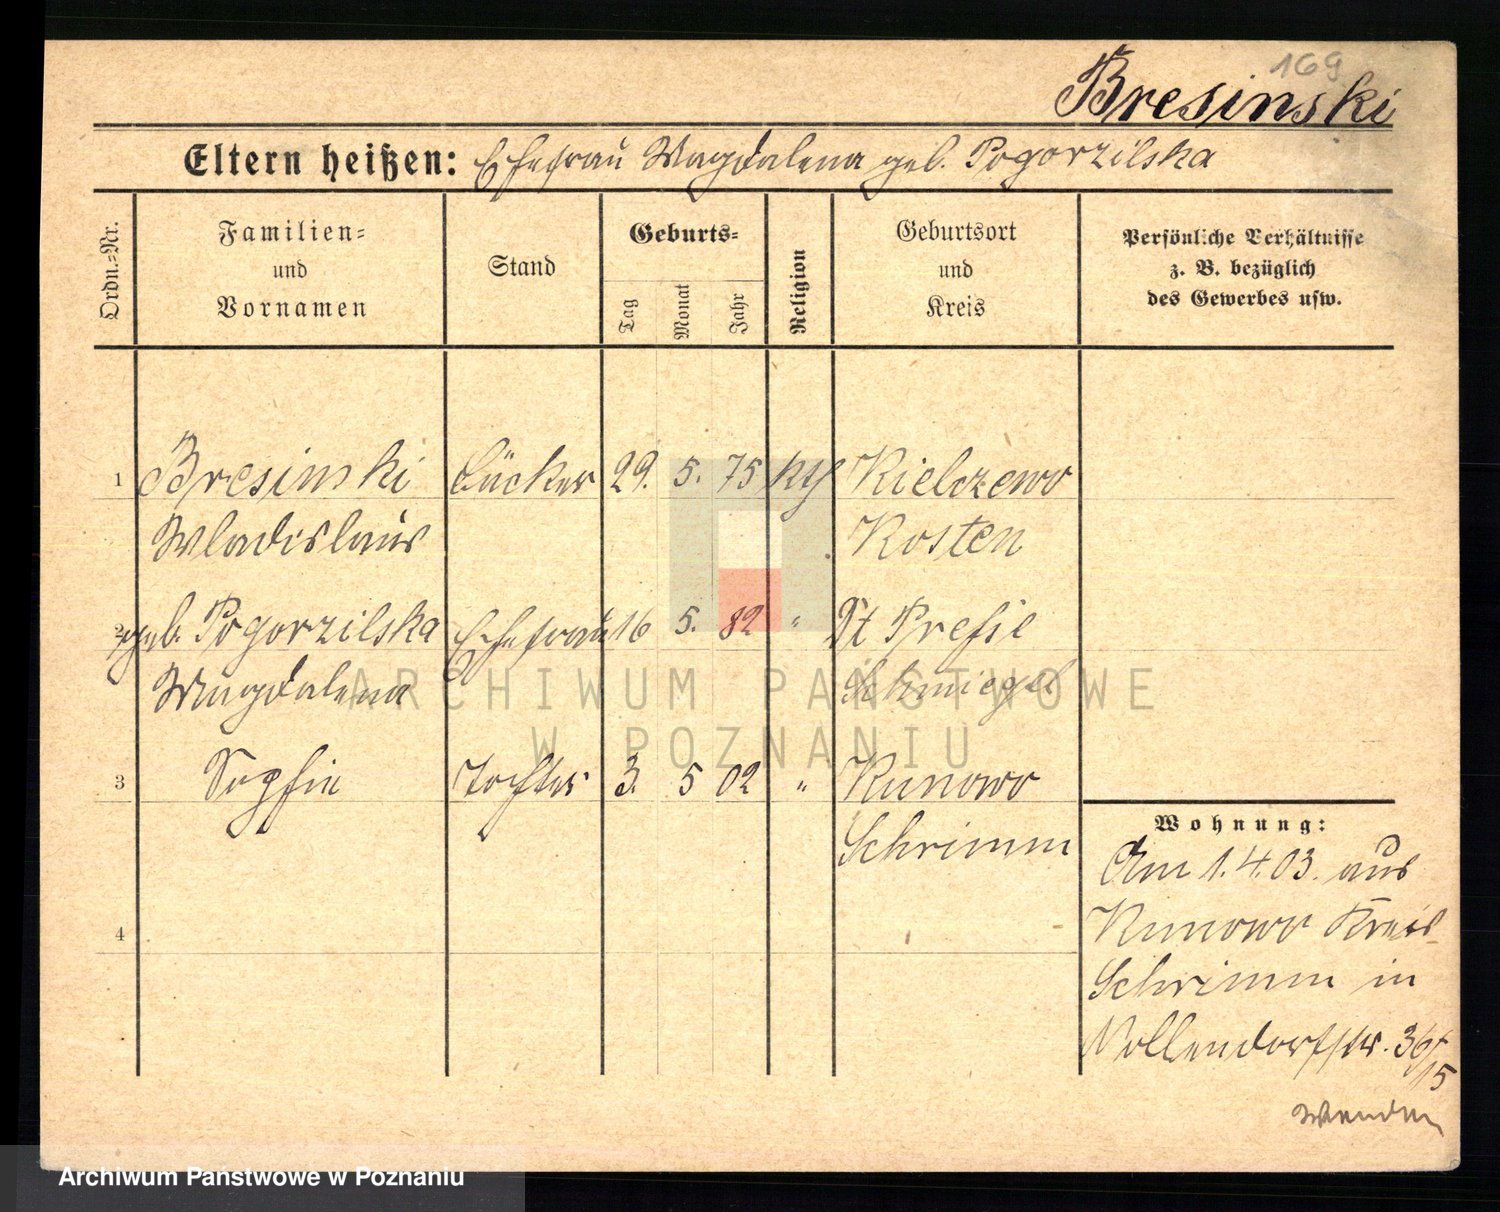 169
Bresinski
Eltern heißen: Ehefrau Magdalena geb. Pogorzilska
Ordn.-Nr.
Familien-
und
Vornamen
Stand
Geburts-
Tag
Monat
Jahr
Religion
Geburtsort
und
Kreis
Persönliche Verhältnisse
z. B. bezüglich
des Gewerbes usw.
1 Bresinski 29. 5. 75 kth Kielczewo
Wladislaus Kosten
2 geb. Pogorzilska Ehefrau 16 5. 82 " Dt Presse
Magdalena Schmiegel
3 Sophie Tochter 3. 5 02 " Kunowo
Schrimm
4
Wohnung:
Am 1.4.03. aus
Kunowo Kreis
Schrimm in
Nollendorfstr. 36
15
Wenden
ARCHIWUM PAŃSTWOWE
W POZNANIU
Archiwum Państwowe w Poznaniu